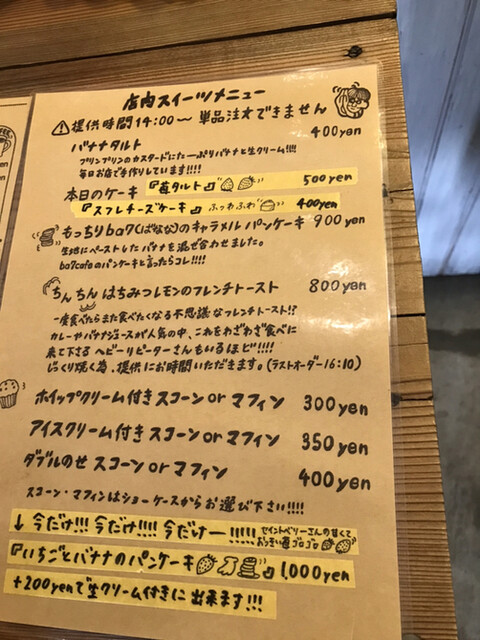 店内スイーツメニュー
⚠提供時間14:00〜 単品注文できません
バナナタルト 400yen
プリンプリンのカスタードにたーっぷりバナナと生クリーム!!!!
毎日お店で手作りしています!!!!
本日のケーキ『苺タルト』 500yen
『スフレチーズケーキ』ふわふわ 400yen
もっちりba7(ばなな)のキャラメルパンケーキ 900yen
生地にペーストしたバナナを混ぜ合わせました。
ba7cafeのパンケーキと言ったらコレ!!!!
ちんちんはちみつレモンのフレンチトースト 800yen
一度食べたらまた食べたくなる不思議なフレンチトースト!?
カレーやバナナジュースが人気の中、これをわざわざ食べに
来て下さるヘビーリピーターさんもいるほど!!!!
じっくり焼く為、提供にお時間いただきます。(ラストオーダー16:10)
ホイップクリーム付きスコーンorマフィン 300yen
アイスクリーム付きスコーンorマフィン 350yen
ダブルのせスコーンorマフィン 400yen
スコーン・マフィンはショーケースからお選び下さい!!!!
↓今だけ!!!今だけ!!!!今だけー!!!!! セイントベリーさんの甘くて
おっきい苺ゴロゴロ
『いちごとバナナのパンケーキ』1,000yen
+200yenで生クリーム付きに出来ます!!!